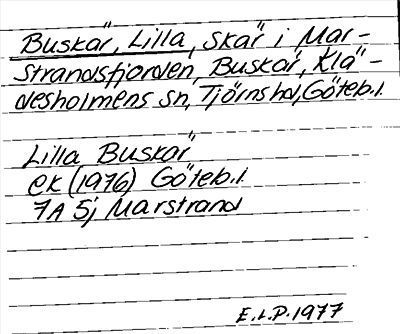 Buskär, Lilla, skär i Mar-
strandsfjorden, Buskär, Klä-
desholmens sn, Tjörns hd, Göteb.l.
Lilla Buskär
ek (1976) Göteb.l
7A 5j Marstrand
E.L.P. 1977